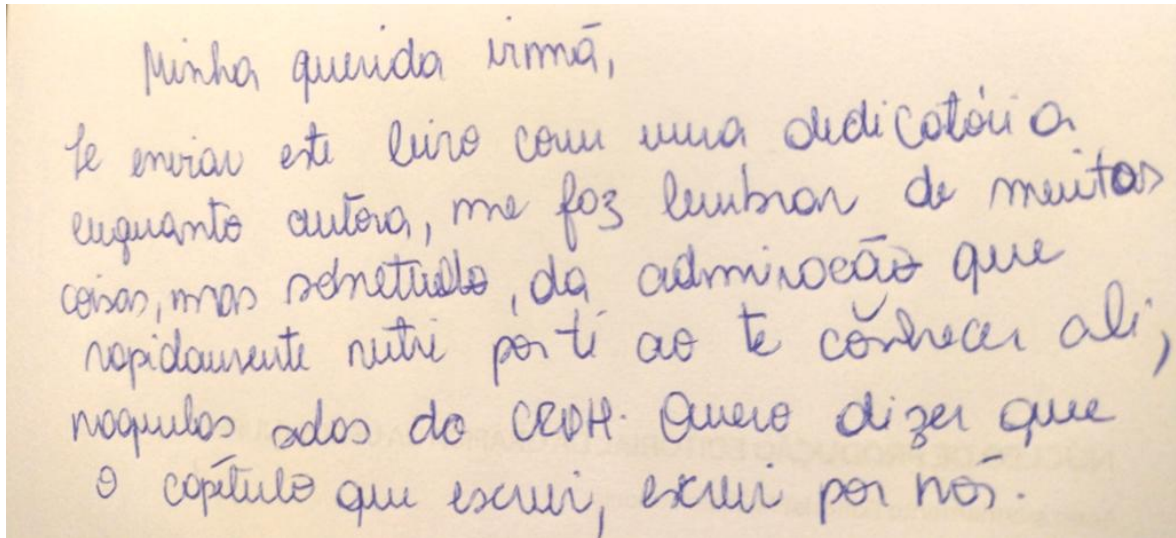 Minha querida irmã,
te enviar este livro com uma dedicatória
enquanto autora, me faz lembrar de muitas
coisas, mas sobretudo, da admiração que
rapidamente nutri por ti ao te conhecer ali,
naquelas salas do CRDH. Quero dizer que
o capítulo que escrevi, escrevi por nós.